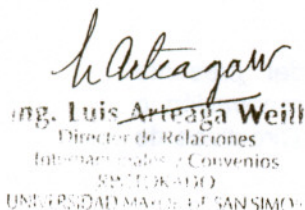 h Arteagaw
Ing. Luis Arteaga Weill
Director de Relaciones
Internacionales y Convenios
RECTORADO
UNIVERSIDAD MAYOR DE SAN SIMO